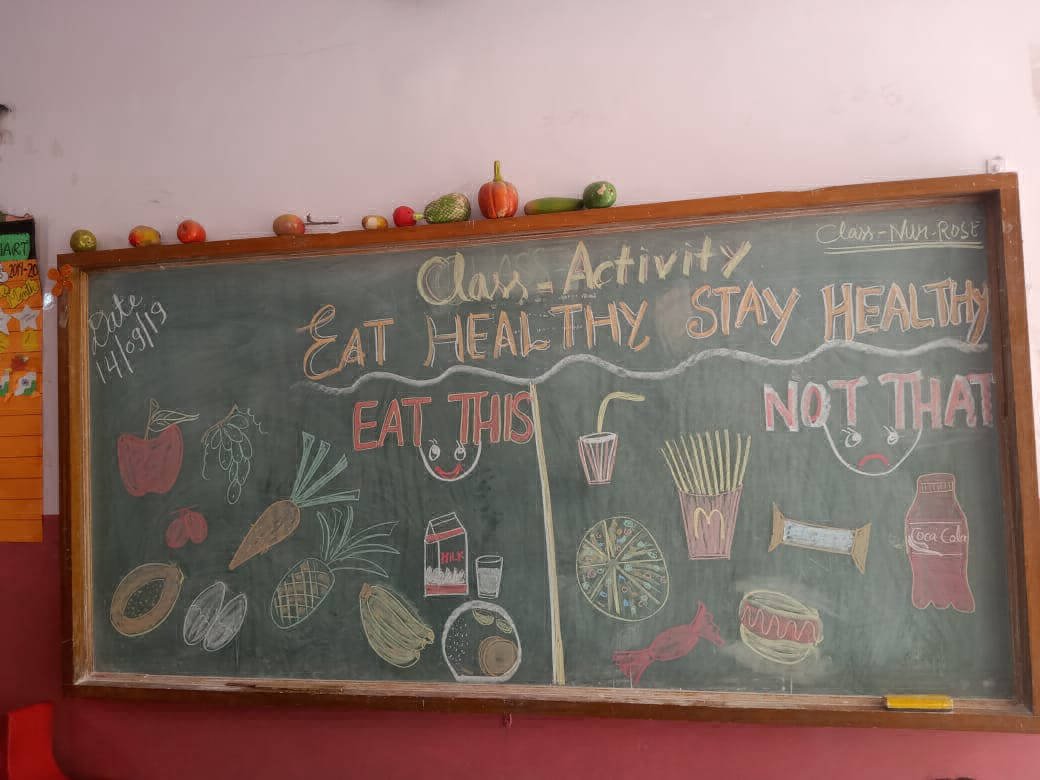 Class-Nur-Rose
Class-Activity
Date
14/09/19
EAT HEALTHY STAY HEALTHY
EAT THIS
NOT THAT
MILK
M
Coca Cola
ART
2019-20
Month